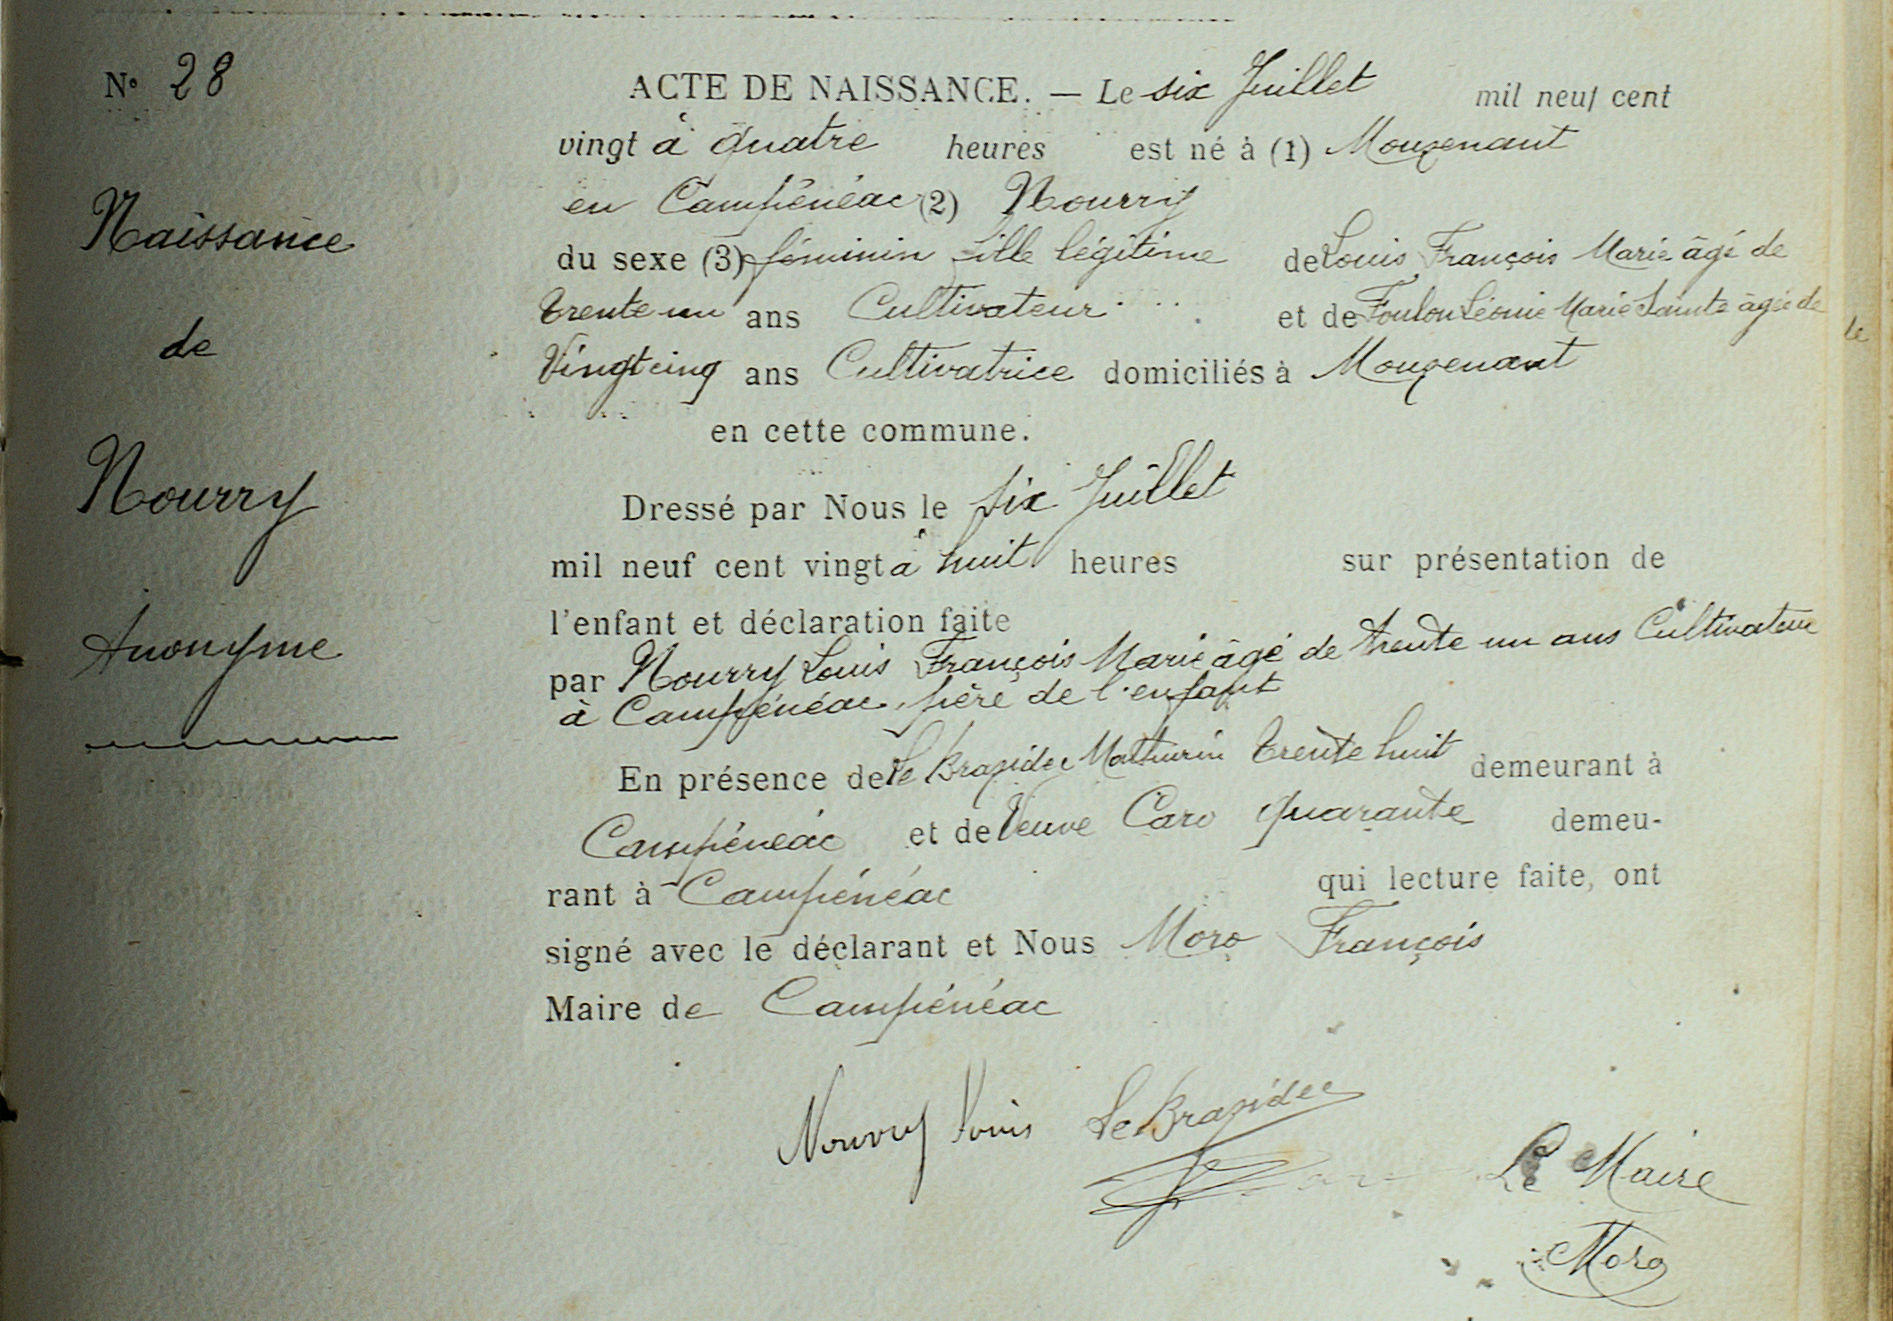 N° 28
Naissance
de
Nourry
Anonyme
ACTE DE NAISSANCE. — Le six Juillet mil neuf cent
vingt à quatre heures est né à (1) Mouzenant
en Campénéac (2) Nourry
du sexe (3) féminin fille légitime de Louis François Marie âgé de
trente un ans Cultivateur et de Foulon Léonie Marie Sainte âgée de
Vingt cinq ans Cultivatrice domiciliés à Mouzenant
en cette commune.
Dressé par Nous le six Juillet
mil neuf cent vingt à huit heures sur présentation de
l'enfant et déclaration faite
par Nourry Louis François Marie âgé de trente un ans Cultivateur
à Campénéac, père de l'enfant
En présence de Le Brazidec Mathurin trente huit demeurant à
Campénéac et de Veuve Caro quarante demeu-
rant à Campénéac qui lecture faite, ont
signé avec le déclarant et Nous Moro François
Maire de Campénéac
Nourry Louis Le Brazidec
Le Maire
Moro